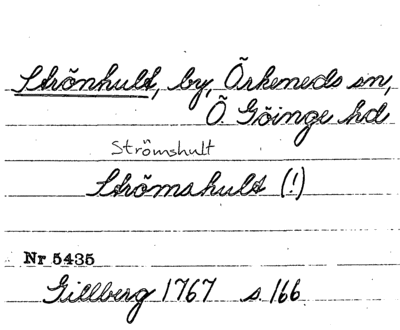 Strönhult, by, Örkeneds sn,
Ö Göinge hd
Strömshult
Strömshult (!)
Nr 5435
Gillberg 1767 s. 166